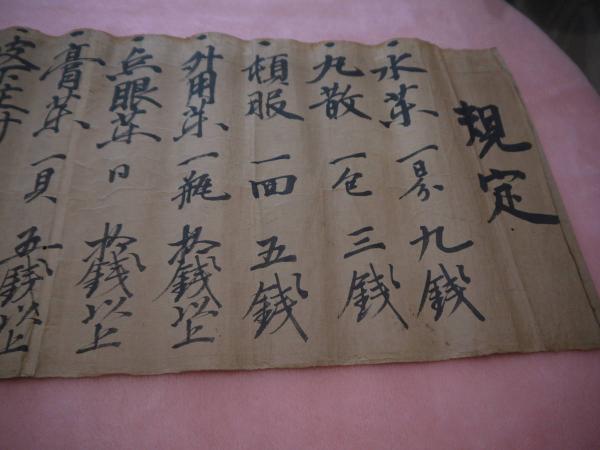 規定
水薬 一日分 九銭
丸散 一包 三銭
頓服 一回 五銭
外用薬 一瓶 拾銭以上
点眼薬 日 拾銭以上
膏薬 一貝 五銭以上
皮下注